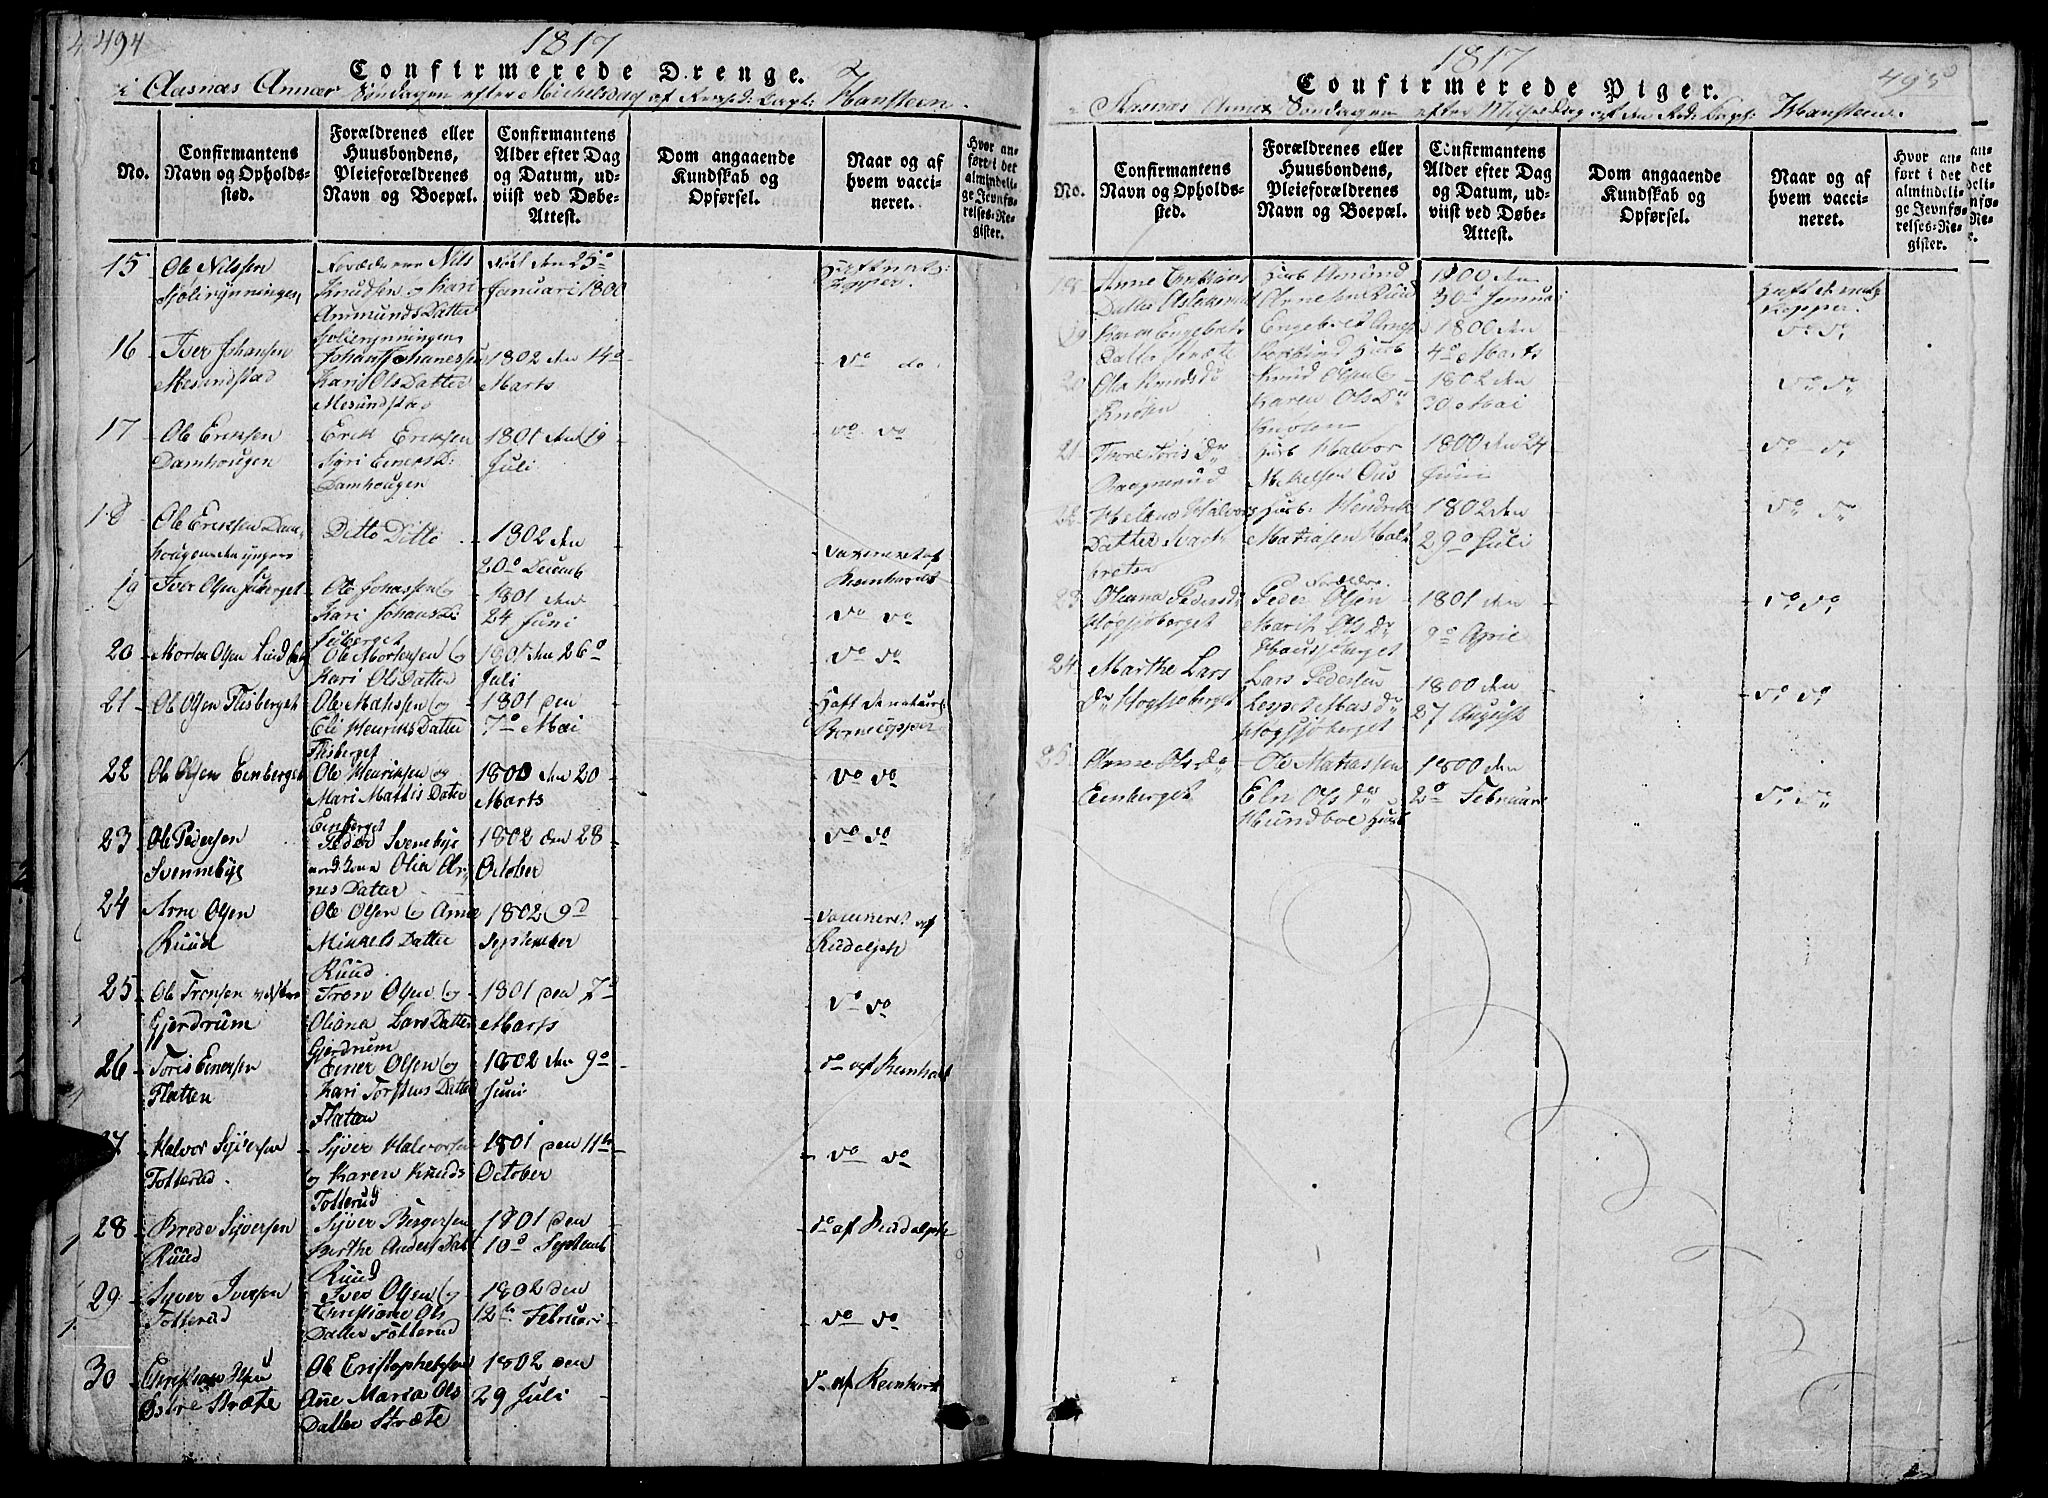 494
1817
Confirmerede Drenge.
i Aasnæs Annex Søndagen efter Michelsdag af Hansteen.
No.
Confirmantens
Navn og Opholds-
sted.
Forældrenes eller
Huusbondens,
Pleieforældrenes
Navn og Boepæl.
Confirmantens
Alder efter Dag
og Datum, ud-
viist ved Døbe-
Attest.
Dom angaaende
Kundskab og
Opførsel.
Naar og af
hvem vacci-
neret.
Hvor an-
ført i det
almindeli-
ge Jevnfø-
relses-Re-
gister.
15
Ole Nilssen
Forældrene Nils
Knudsen og Kari
Ammunds Datter
født den 25
Januari 1800
16
Iver Johansen
Mesundstad
Johan Johanessen
Kari Ols Datter
Mesundstad
1802 den 14
Marts
do do.
17
Ole Eriksen
Damhougen
Erik Eriksen
Siri Eners D:
Damhougen
1801 den 19
Juli
do do
18
Ole Eriksen Dam-
hougen den yngere
Ditto Ditto
1802 den
20 Decemb
vaxineret af
Reinhardt
19
Iver Olsen
Ole Johassen og
Kari Johans D:
1801 den
24 Juni
do do
20
Morten Olsen
Ole Mortensen og
Kari Ols Datter
1801 den 26
Juli
do do
21
Ole Olsen Flisberget
Ole Matissen og
Eli Henriks Datter
Flisberget
1801 den
7 Mai
Haft de naturl.
Bornecopper
22
Ole Olsen Eenberget
Ole Henriksen og
Mari Mattis Datter
Eenberget
1800 den 20
Marts
do do
23
Ole Pedersen
Svennebye
Peder Svenebye
med Kone Olia Ar-
nes Datter
1802 den 28
October
do do
24
Arne Olsen
Ruud
Ole Olsen og Anne
Mikkels Datter
Ruud
1802 9d
September
vaccineret af
Rudolph
25
Ole Tronsen
Gjerdrum
Tron Olsen og
Oliana Lars Datter
Gjerdrum
1801 den 7
Marts
do do
26
Toris Enersen
Flatten
Einer Olsen og
Kari Torstens Datter
Flaten
1802 den 9
Juni
do af Reinhart
27
Halvor Syversen
Totterud.
Syver Halvorsen
og Karen Knuds
Totterud
1801 den 11te
October
do do
28
Brede Syversen
Ruud
Syver Bergersen
Berthe Anders Dat
Ruud
1801 den
10 Septemb
do af Rudolph
29
Syver Iversen
Totterud
Iver Olsen og
Christiane Ols
Datter Totterud
1802 den
12te Februari
do do
30
Christian Olsen
Østre Stræte
Ole Cristophersen
Ane Maria Ols
Datter Stræte
1802 den
29 Juli
do af Reinhart
495
1817
Confirmerede Piger.
Aasnæs Annex Søndagen efter Hansteen.
No.
Confirmantens
Navn og Opholds-
sted.
Forældrenes eller
Huusbondens,
Pleieforældrenes
Navn og Boepæl.
Confirmantens
Alder efter Dag
og Datum, ud-
viist ved Døbe-
Attest.
Dom angaaende
Kundskab og
Opførsel.
Naar og af
hvem vacci-
neret.
Hvor an-
ført i det
almindeli-
ge Jevnfø-
relses-Re-
gister.
18
Anne
Datter
Husb Amund
Arnesen Ruud
1800 den
30 Januari
Haft de naturl
Kopper.
19
Karen Engebrets
Datter Stræte
Engebret Arnes
Husb
1800 den
4 Marts
do do
20
Olea Knuds dr
Knosen
Knud Olsen og
Karen Ols Dr
Knosen
1802 den
30 Mai
do do
21
Thore Toris Dr
Raagnerud
Husb Halvor
Mikelsen Ous
1800 den 24
Juni
do do
22
Helene Halvors
Datter
Husb: Hendrik
Matiasen
1802 den
29 Juli
do do
23
Oleana Peders dr
Hogsjøberget
Forældre.
Peder Olsen
Marit Ols Dr
1801 den
9 April
do do
24
Marthe Lars
Dr Hogsjøberget
Lars Pedersen
Høgsjøberget
1800 den
27 August
do do
25
Anne Ols dr
Eenberget
Ole Matiassen
Eln Ols dr
Hundboe Husb
1800 den
2 Februari
do do